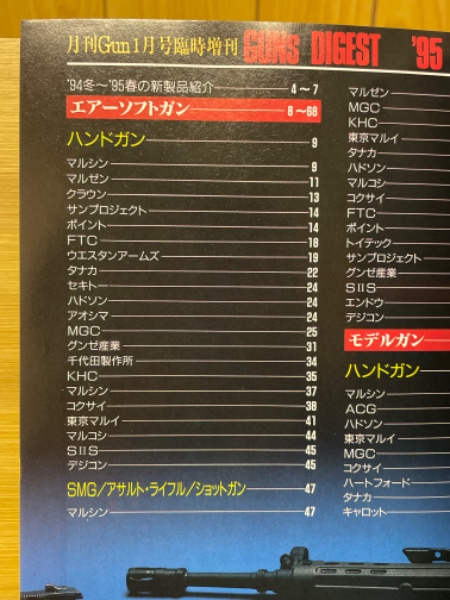 月刊Gun1月号臨時増刊 GUNS DIGEST '95
'94冬〜'95春の新製品紹介 4〜7
エアーソフトガン 8〜68
ハンドガン 9
マルシン 9
マルゼン 11
クラウン 13
サンプロジェクト 14
ポイント 14
FTC 18
ウエスタンアームズ 19
タナカ 22
セキトー 24
ハドソン 24
アオシマ 24
MGC 25
グンゼ産業 31
千代田製作所 34
KHC 35
マルシン 37
コクサイ 38
東京マルイ 41
マルコシ 44
SⅡS 45
デジコン 45
SMG/アサルト・ライフル/ショットガン 47
マルシン 47
マルゼン
MGC
KHC
東京マルイ
タナカ
ハドソン
マルコシ
コクサイ
FTC
ポイント
トイテック
サンプロジェクト
グンゼ産業
SⅡS
エンドウ
デジコン
モデルガン
ハンドガン
マルシン
ACG
ハドソン
東京マルイ
MGC
コクサイ
ハートフォード
タナカ
キャロット